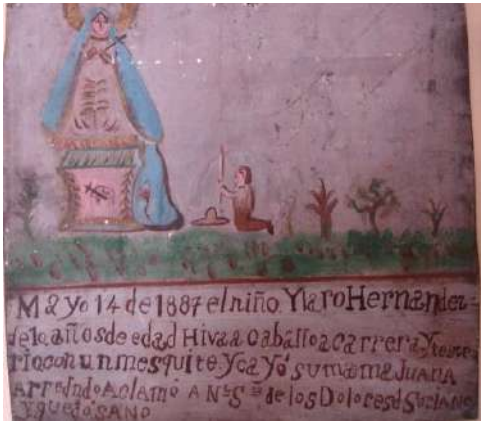 Mayo 14 de 1887 el niño. Ylaro Hernandez=
de10 años de edad Hiva a caballo a carrera Y
rio con un mesquite. Y cayó su mama Juana
Arredndo Aclamó A Nª. S.ª de los Dolores d
Y quedó SANO